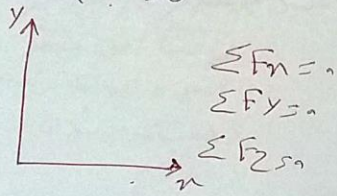 y
ΣFx = 0
ΣFy = 0
ΣFz = 0
x